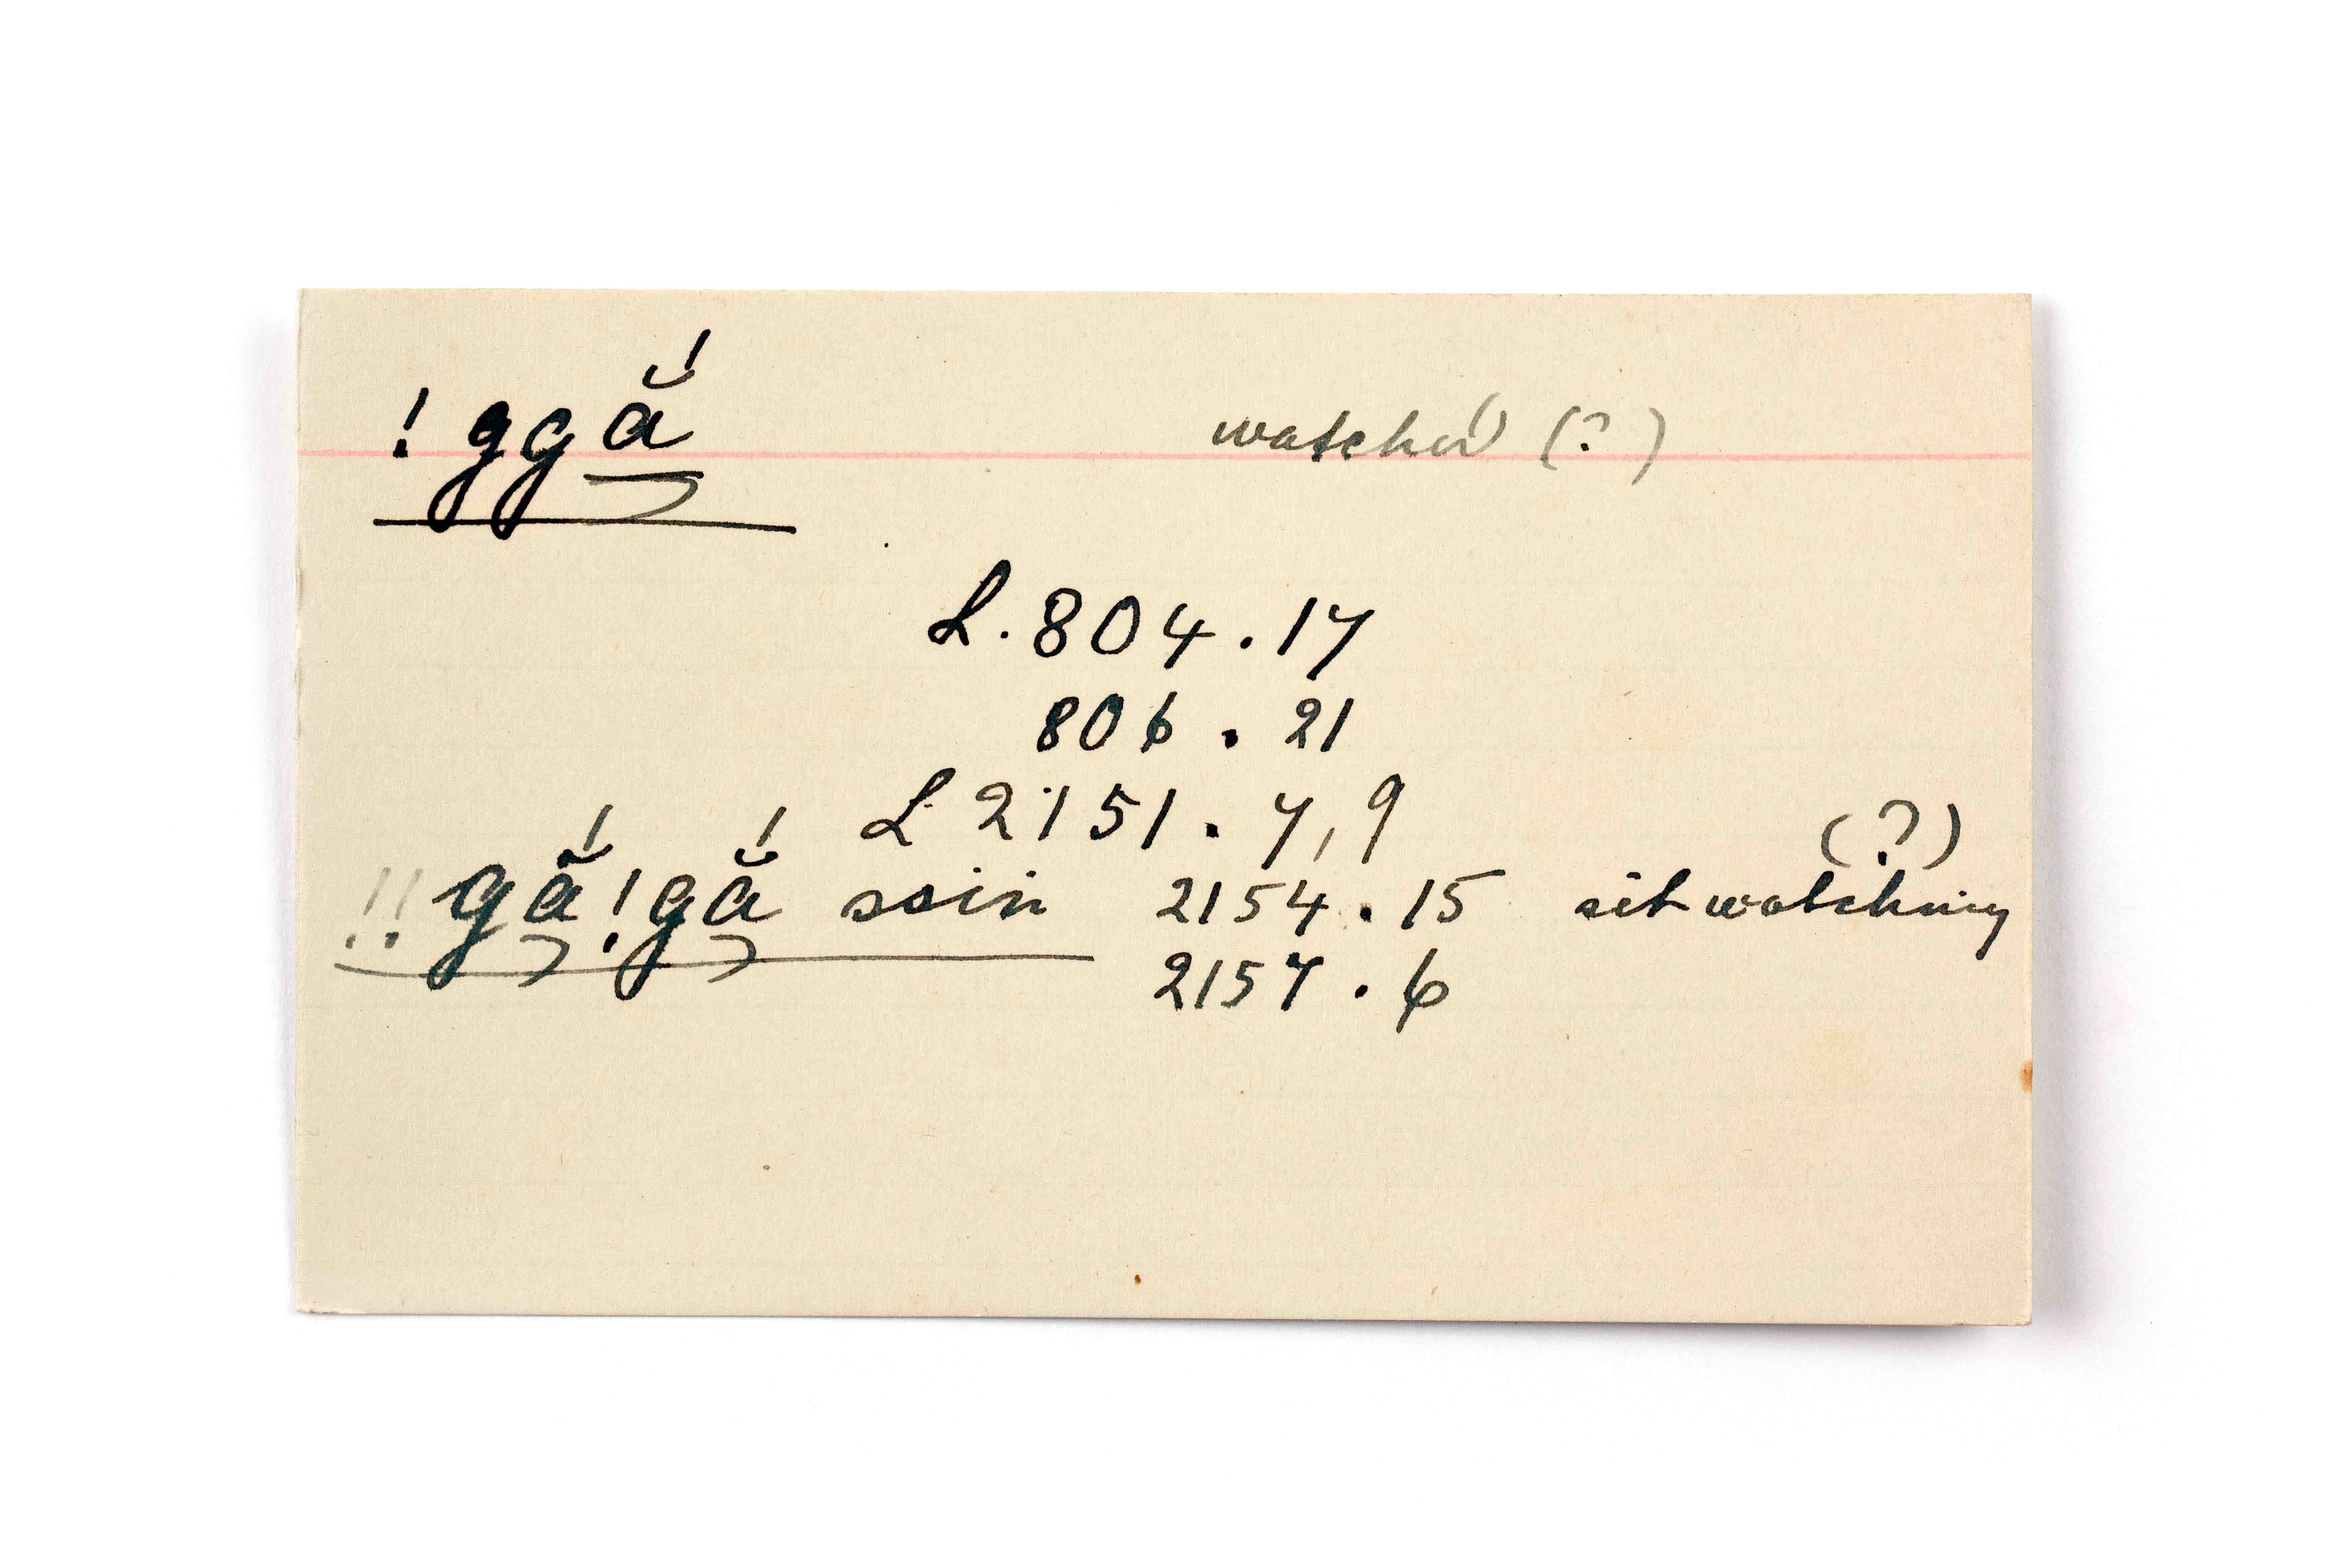 ! ggắ watched (?)
L. 804 . 17
806 . 21
L 2151 . 7, 9
!! gắ !gắ ssin 2154 . 15 sit watching (?)
2157 . 6